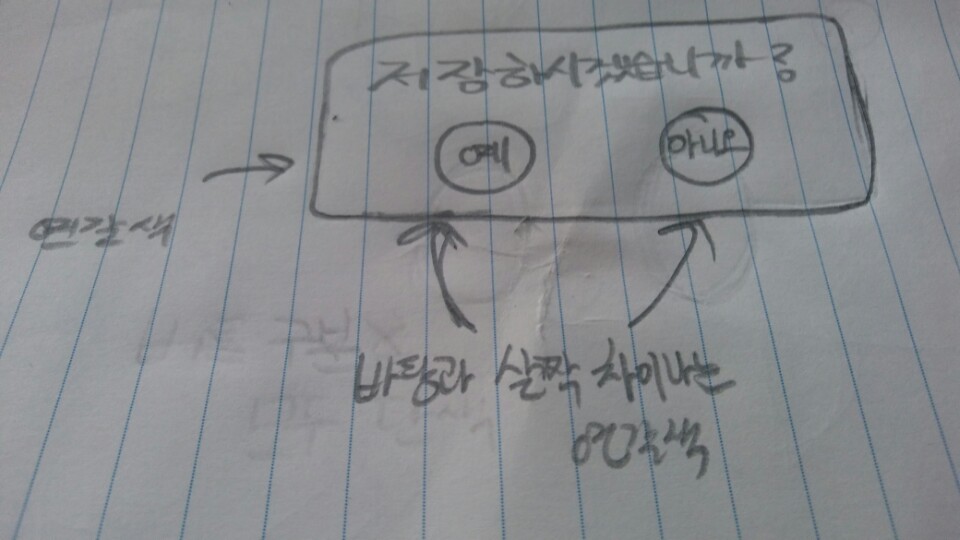 저장하시겠습니까?
예
아니요
연갈색
바탕과 살짝 차이나는
연갈색